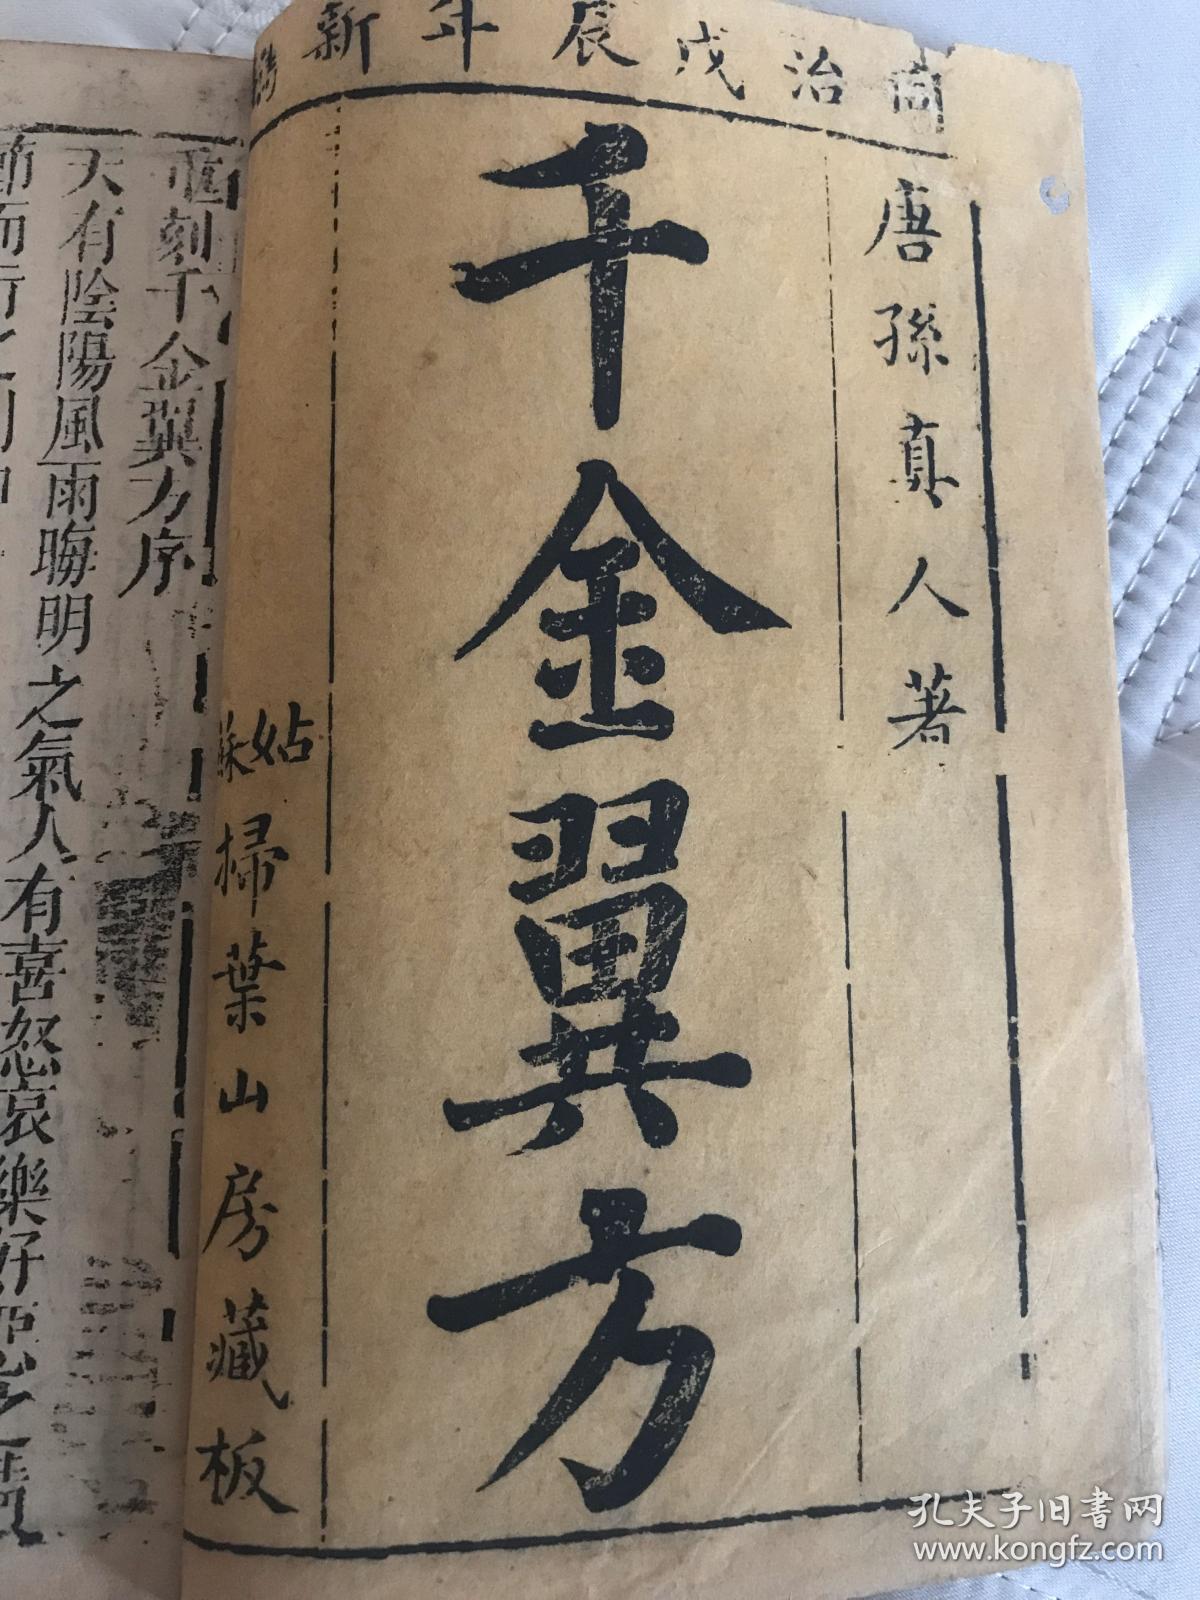 同治戊辰年新鐫
唐孫真人著
千金翼方
姑蘇掃葉山房藏板
重刻千金翼方序
天有陰陽風雨晦明之氣人有喜怒哀樂好惡之情
節而行之則
孔夫子旧书网
www.kongfz.com